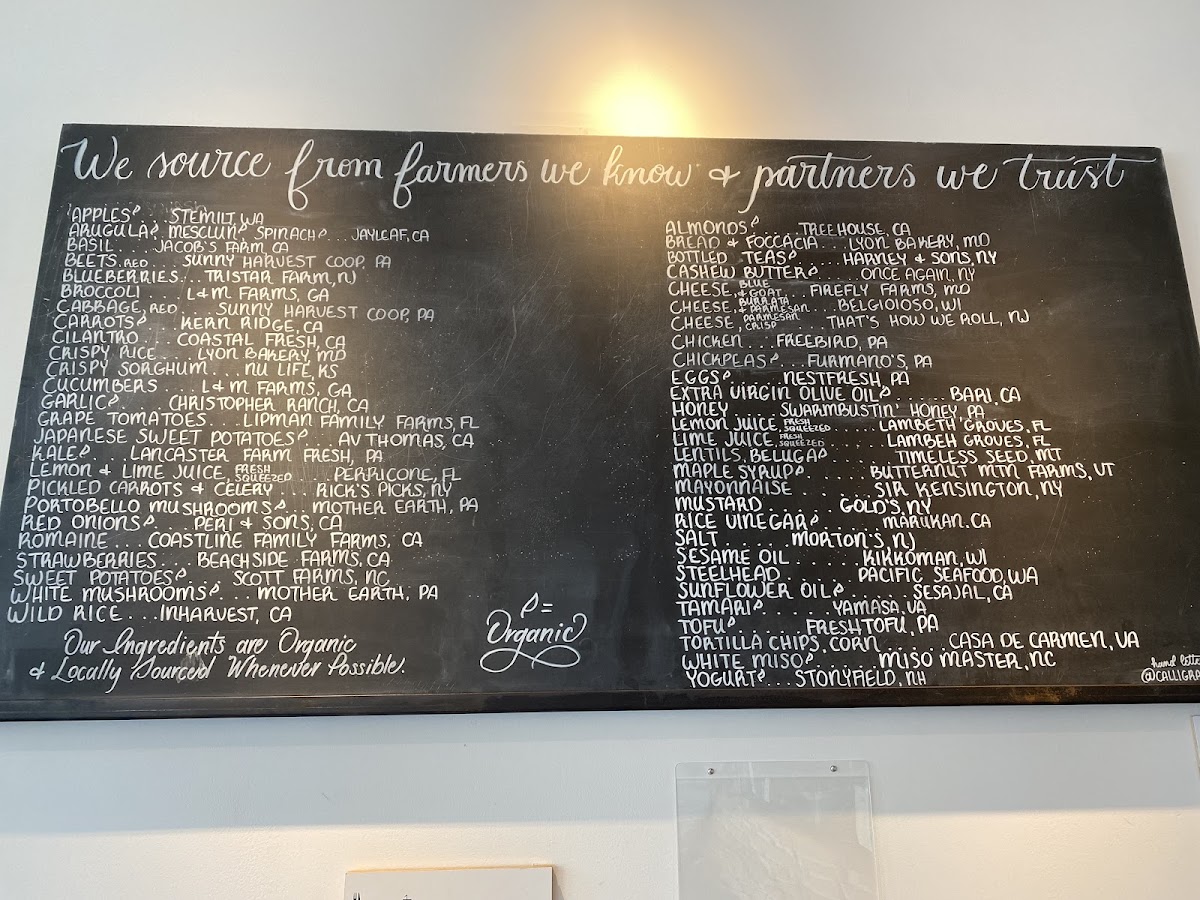 We source from farmers we know & partners we trust
APPLES... STEMILT, WA
ARUGULA, MESCLUN, SPINACH... JAYLEAF, CA
BASIL.... JACOB'S FARM, CA
BEETS, RED... SUNNY HARVEST COOP, PA
BLUEBERRIES... TRISTAR FARM, NJ
BROCCOLI.... L&M FARMS, GA
CABBAGE, RED... SUNNY HARVEST COOP, PA
CARROTS... KERN RIDGE, CA
CILANTRO... COASTAL FRESH, CA
CRISPY RICE.... LYON BAKERY, MD
CRISPY SORGHUM... NU LIFE, KS
CUCUMBERS.... L&M FARMS, GA
GARLIC.... CHRISTOPHER RANCH, CA
GRAPE TOMATOES... LIPMAN FAMILY FARMS, FL
JAPANESE SWEET POTATOES... AV THOMAS, CA
KALE.... LANCASTER FARM FRESH, PA
LEMON & LIME JUICE, FRESH SQUEEZED..... PERRICONE, FL
PICKLED CARROTS & CELERY... RICK'S PICKS, NY
PORTOBELLO MUSHROOMS... MOTHER EARTH, PA
RED ONIONS.... PERI & SONS, CA
ROMAINE... COASTLINE FAMILY FARMS, CA
STRAWBERRIES... BEACHSIDE FARMS, CA
SWEET POTATOES.... SCOTT FARMS, NC
WHITE MUSHROOMS... MOTHER EARTH, PA
WILD RICE... INHARVEST, CA
Our Ingredients are Organic
& Locally Sourced Whenever Possible.
=
Organic
ALMONDS.... TREEHOUSE, CA
BREAD & FOCCACIA... LYON BAKERY, MD
BOTTLED TEAS.... HARNEY & SONS, NY
CASHEW BUTTER.... ONCE AGAIN, NY
CHEESE, BLUE & GOAT... FIREFLY FARMS, MD
CHEESE, BURRATA & PARMESAN... BELGIOIOSO, WI
CHEESE, PARMESAN CRISP.... THAT'S HOW WE ROLL, NJ
CHICKEN... FREEBIRD, PA
CHICKPEAS... FURMANO'S, PA
EGGS.... NESTFRESH, PA
EXTRA VIRGIN OLIVE OIL...... BARI, CA
HONEY..... SWARMBUSTIN' HONEY, PA
LEMON JUICE, FRESH SQUEEZED..... LAMBETH GROVES, FL
LIME JUICE, FRESH SQUEEZED..... LAMBEH GROVES, FL
LENTILS, BELUGA...... TIMELESS SEED, MT
MAPLE SYRUP...... BUTTERNUT MTN FARMS, VT
MAYONNAISE...... SIR KENSINGTON, NY
MUSTARD...... GOLD'S, NY
RICE VINEGAR...... MARUKAN, CA
SALT..... MORTON'S, NJ
SESAME OIL..... KIKKOMAN, WI
STEELHEAD..... PACIFIC SEAFOOD, WA
SUNFLOWER OIL..... SESAJAL, CA
TAMARI..... YAMASA, VA
TOFU.... FRESH TOFU, PA
TORTILLA CHIPS, CORN..... CASA DE CARMEN, VA
WHITE MISO..... MISO MASTER, NC
YOGURT... STONYFIELD, NH
hand lette
@CALLIGRA